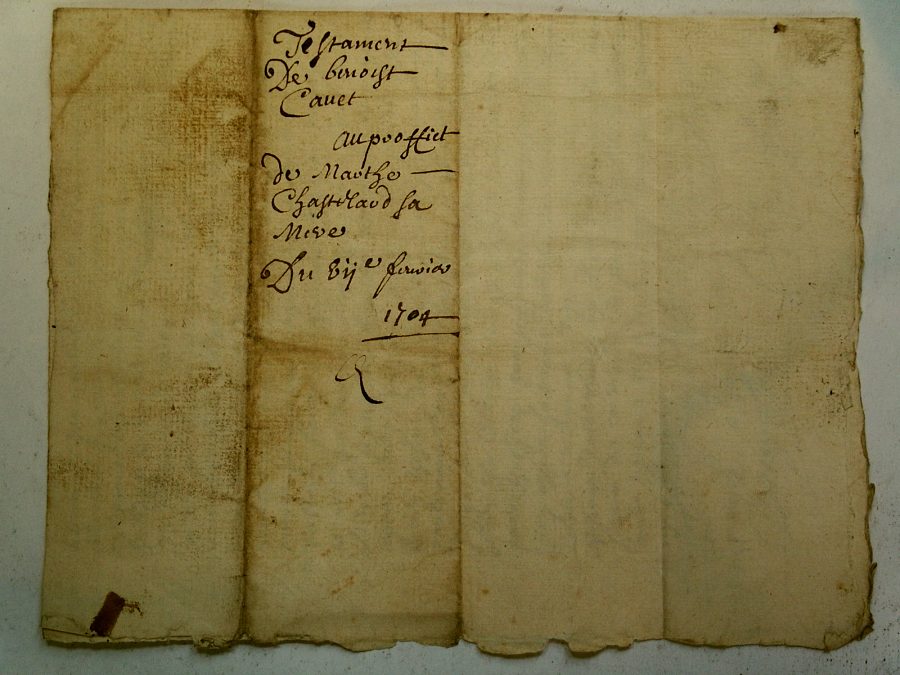 Testament
De benoist
Cavet
au proffict
de Marthe
Chastelard sa
Mere
Du vije fevrier
1704